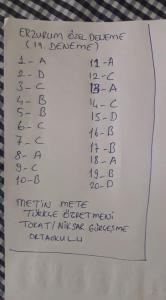 ERZURUM ÖZEL DENEME
(19. DENEME)
1 - A
2 - D
3 - C
4 - B
5 - B
6 - C
7 - C
8 - A
9 - C
10 - B
11 - A
12 - C
13 - A
14 - C
15 - D
16 - B
17 - B
18 - A
19 - B
20 - D
METİN METE
TÜRKÇE ÖĞRETMENİ
TOKAT/NİKSAR GÜRÇEŞME
ORTAOKULU